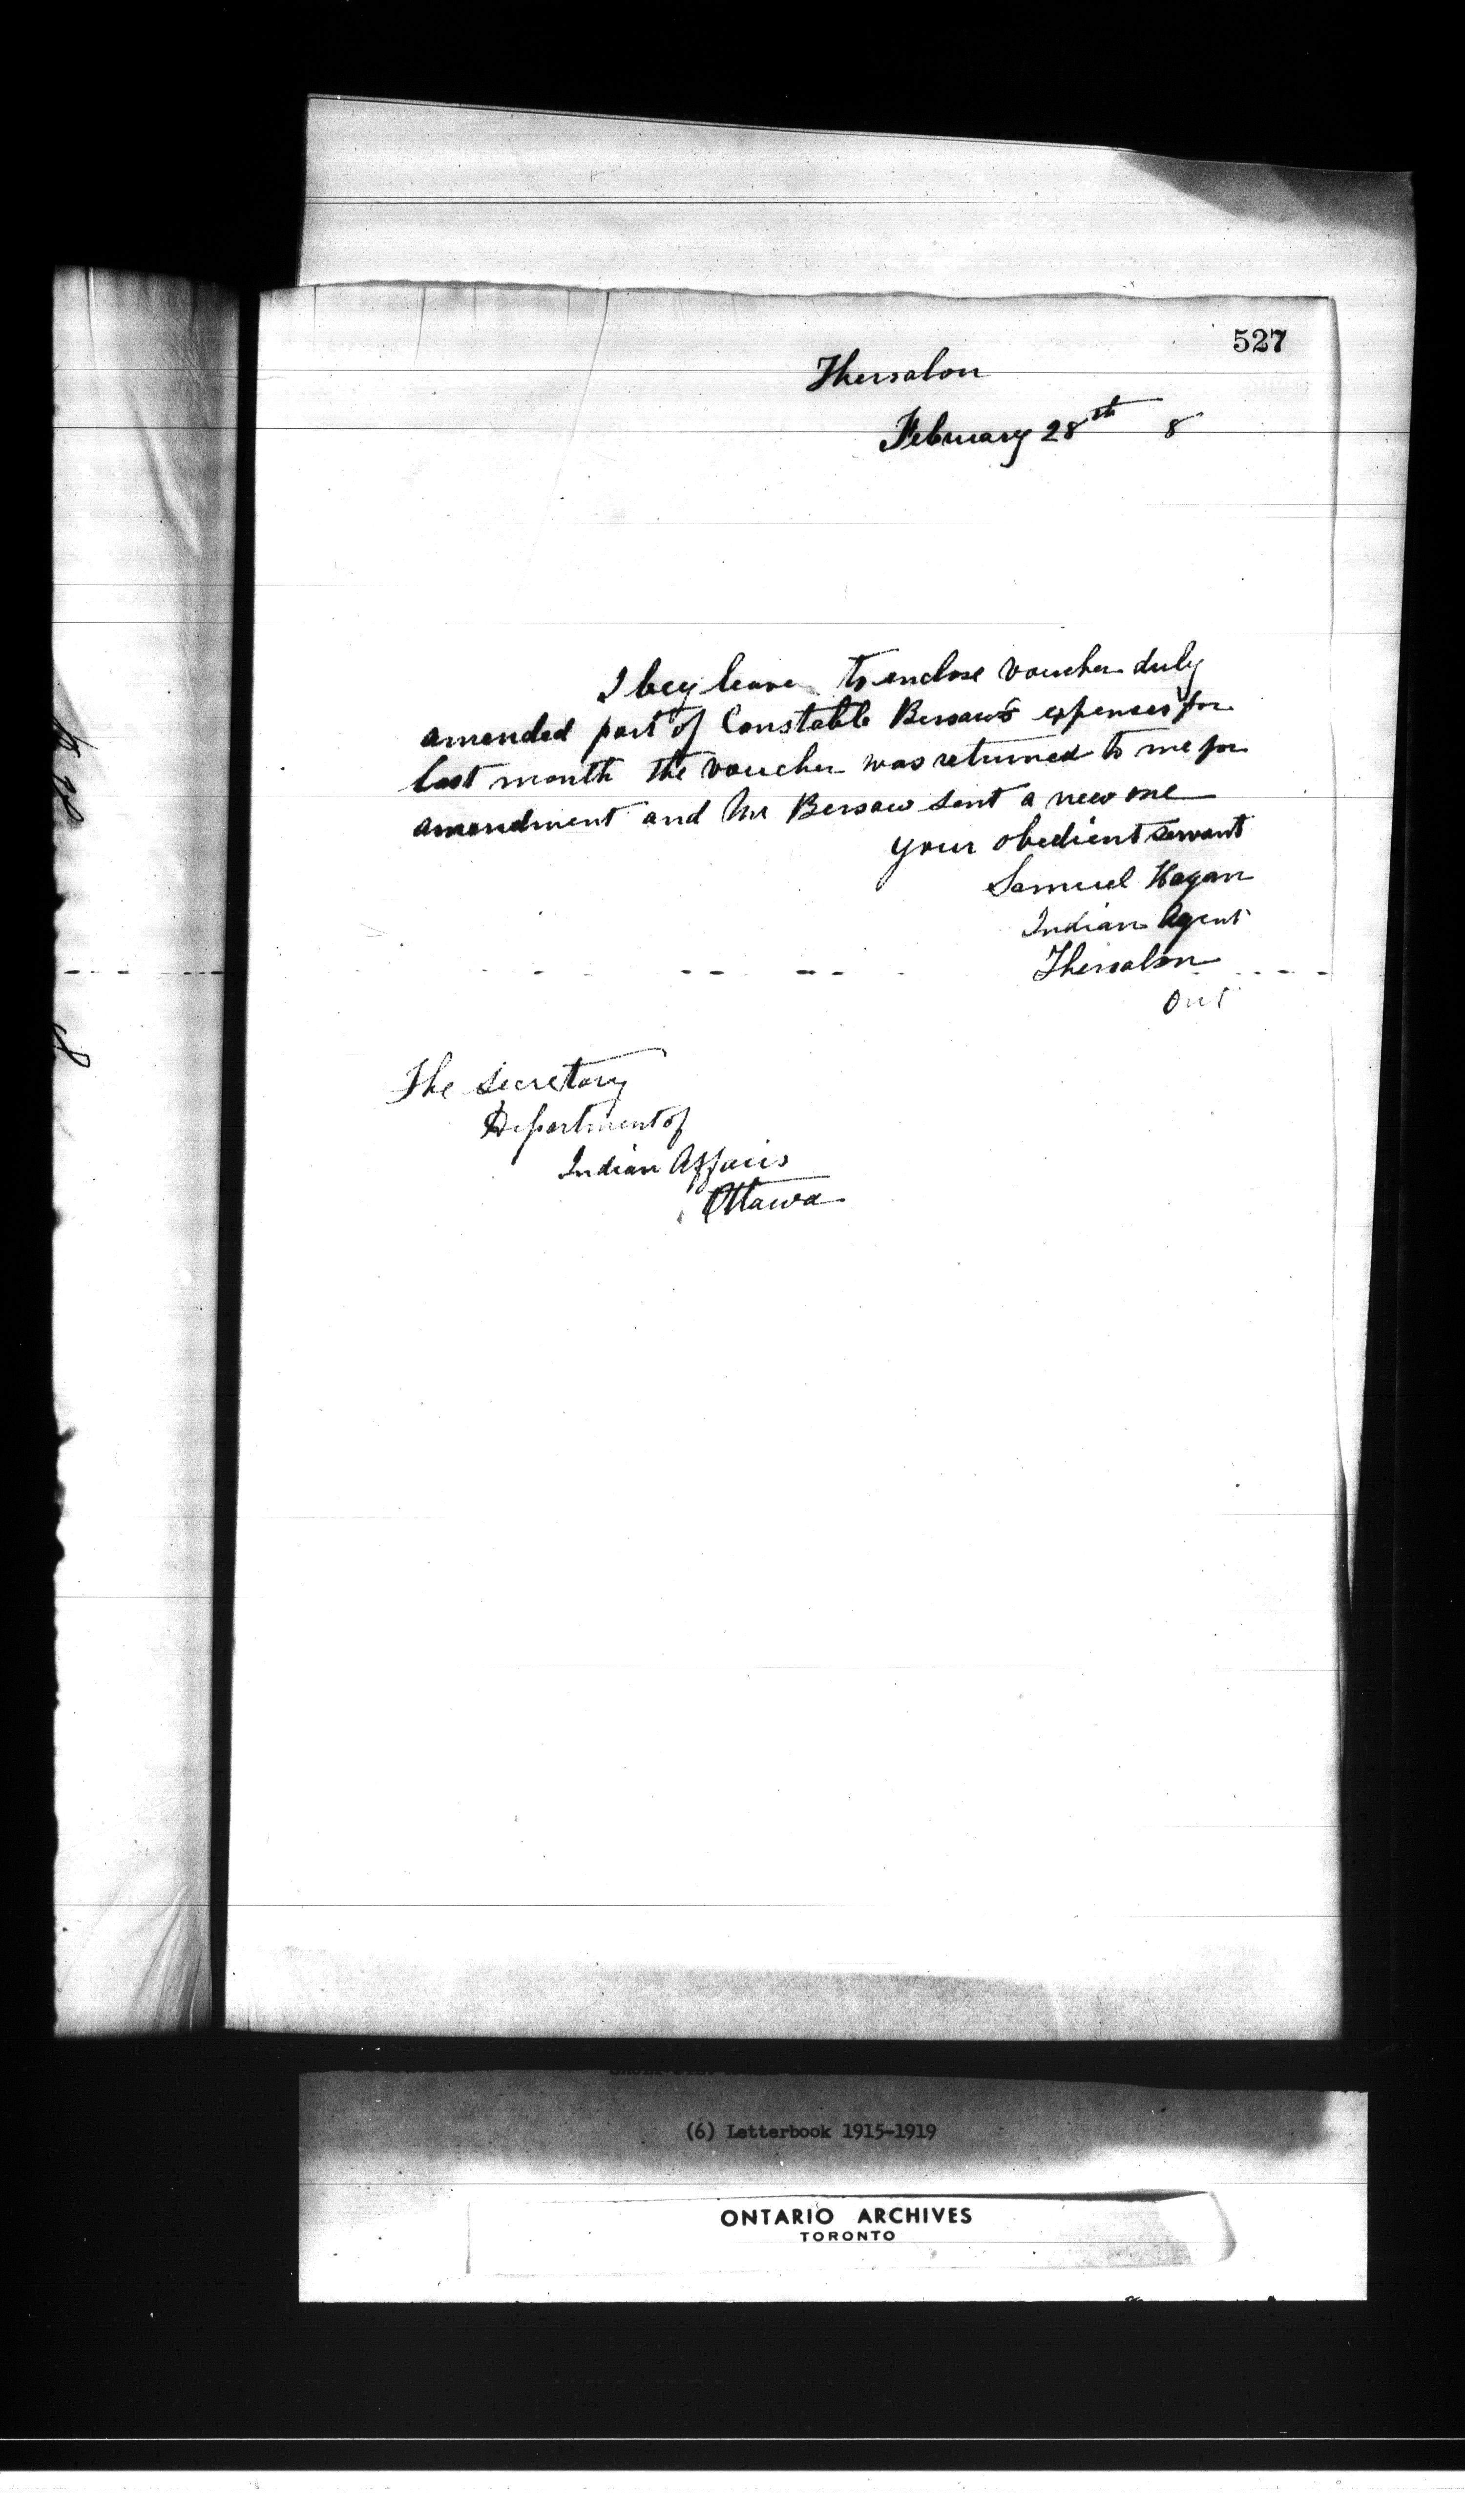 527
Thessalon
February 28th 8
I beg leave to enclose voucher duly
amended part of Constable Bersaw's expenses for
last month the voucher was returned to me for
amendment and Mr Bersaw sent a new one
your obedient servant
Samuel Hagan
Indian Agent
Thessalon
Ont
The Secretary
Department of
Indian Affairs
Ottawa
(6) Letterbook 1915-1919
ONTARIO ARCHIVES
TORONTO